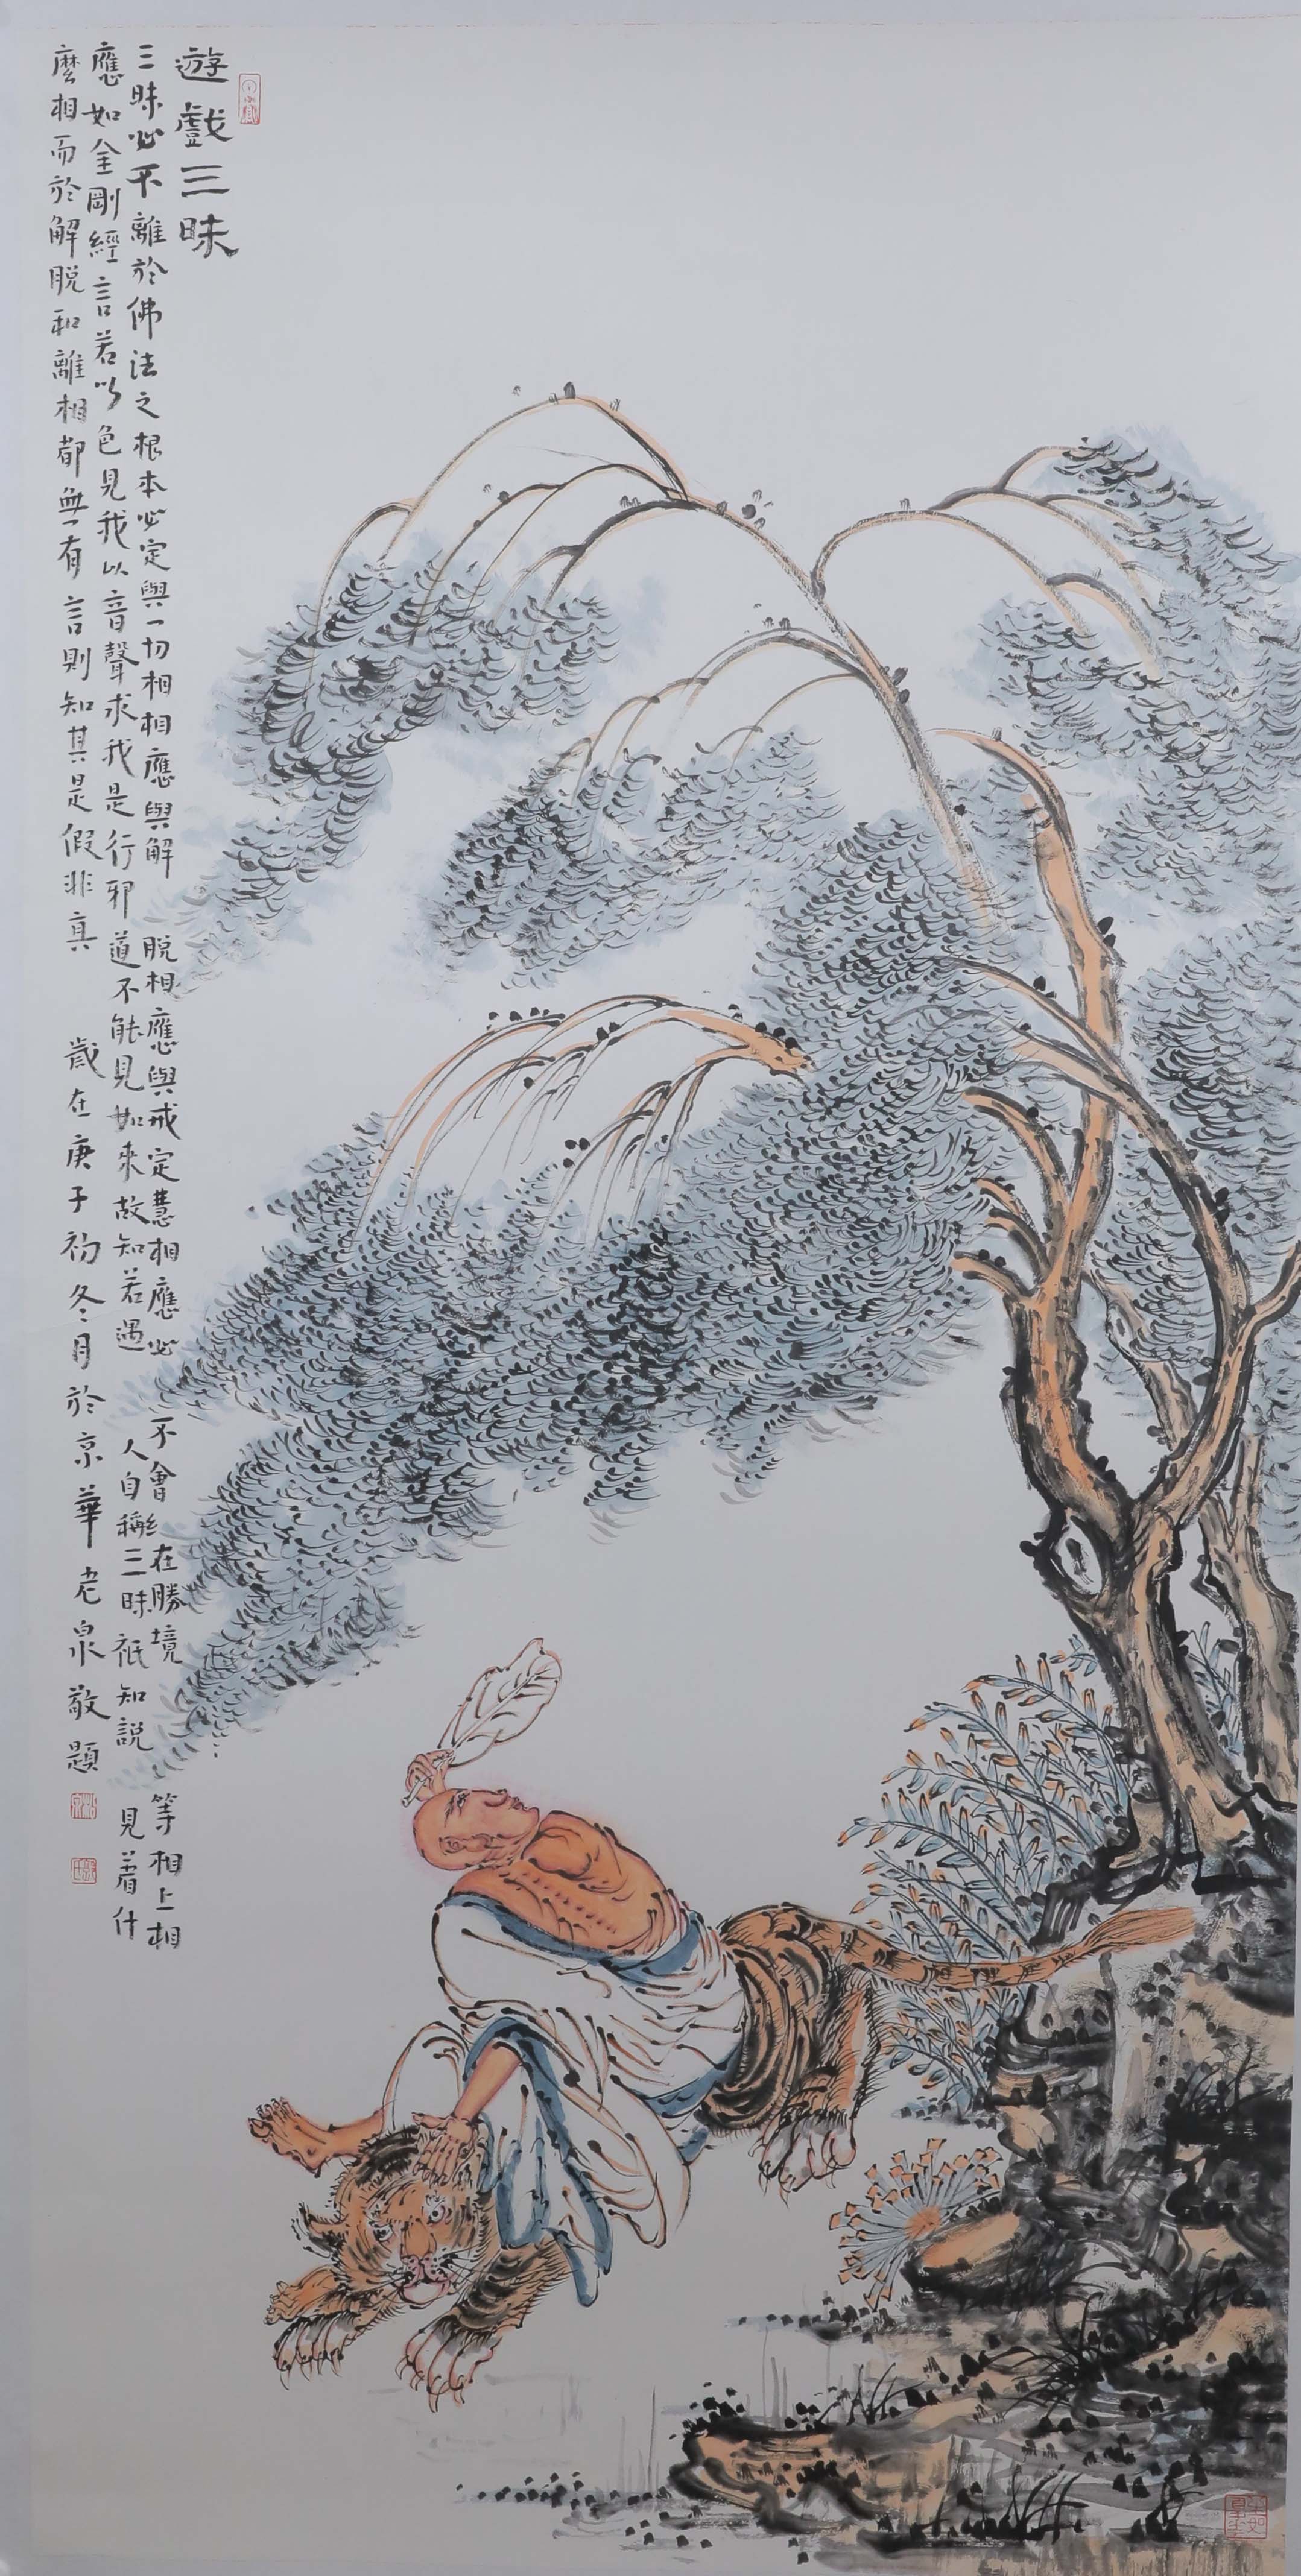 遊戲三昧
三昧必不離於佛法之根本必定與一切相相應與解脱相應與戒定慧相應必不會在勝境等相上相
應如金剛經言若以色見我以音聲求我是行邪道不能見如來故知若遇人自稱三昧祇知說見着什
麼相而於解脱和離相都無有言則知其是假非真 歲在庚子初冬月於京華老泉敬題